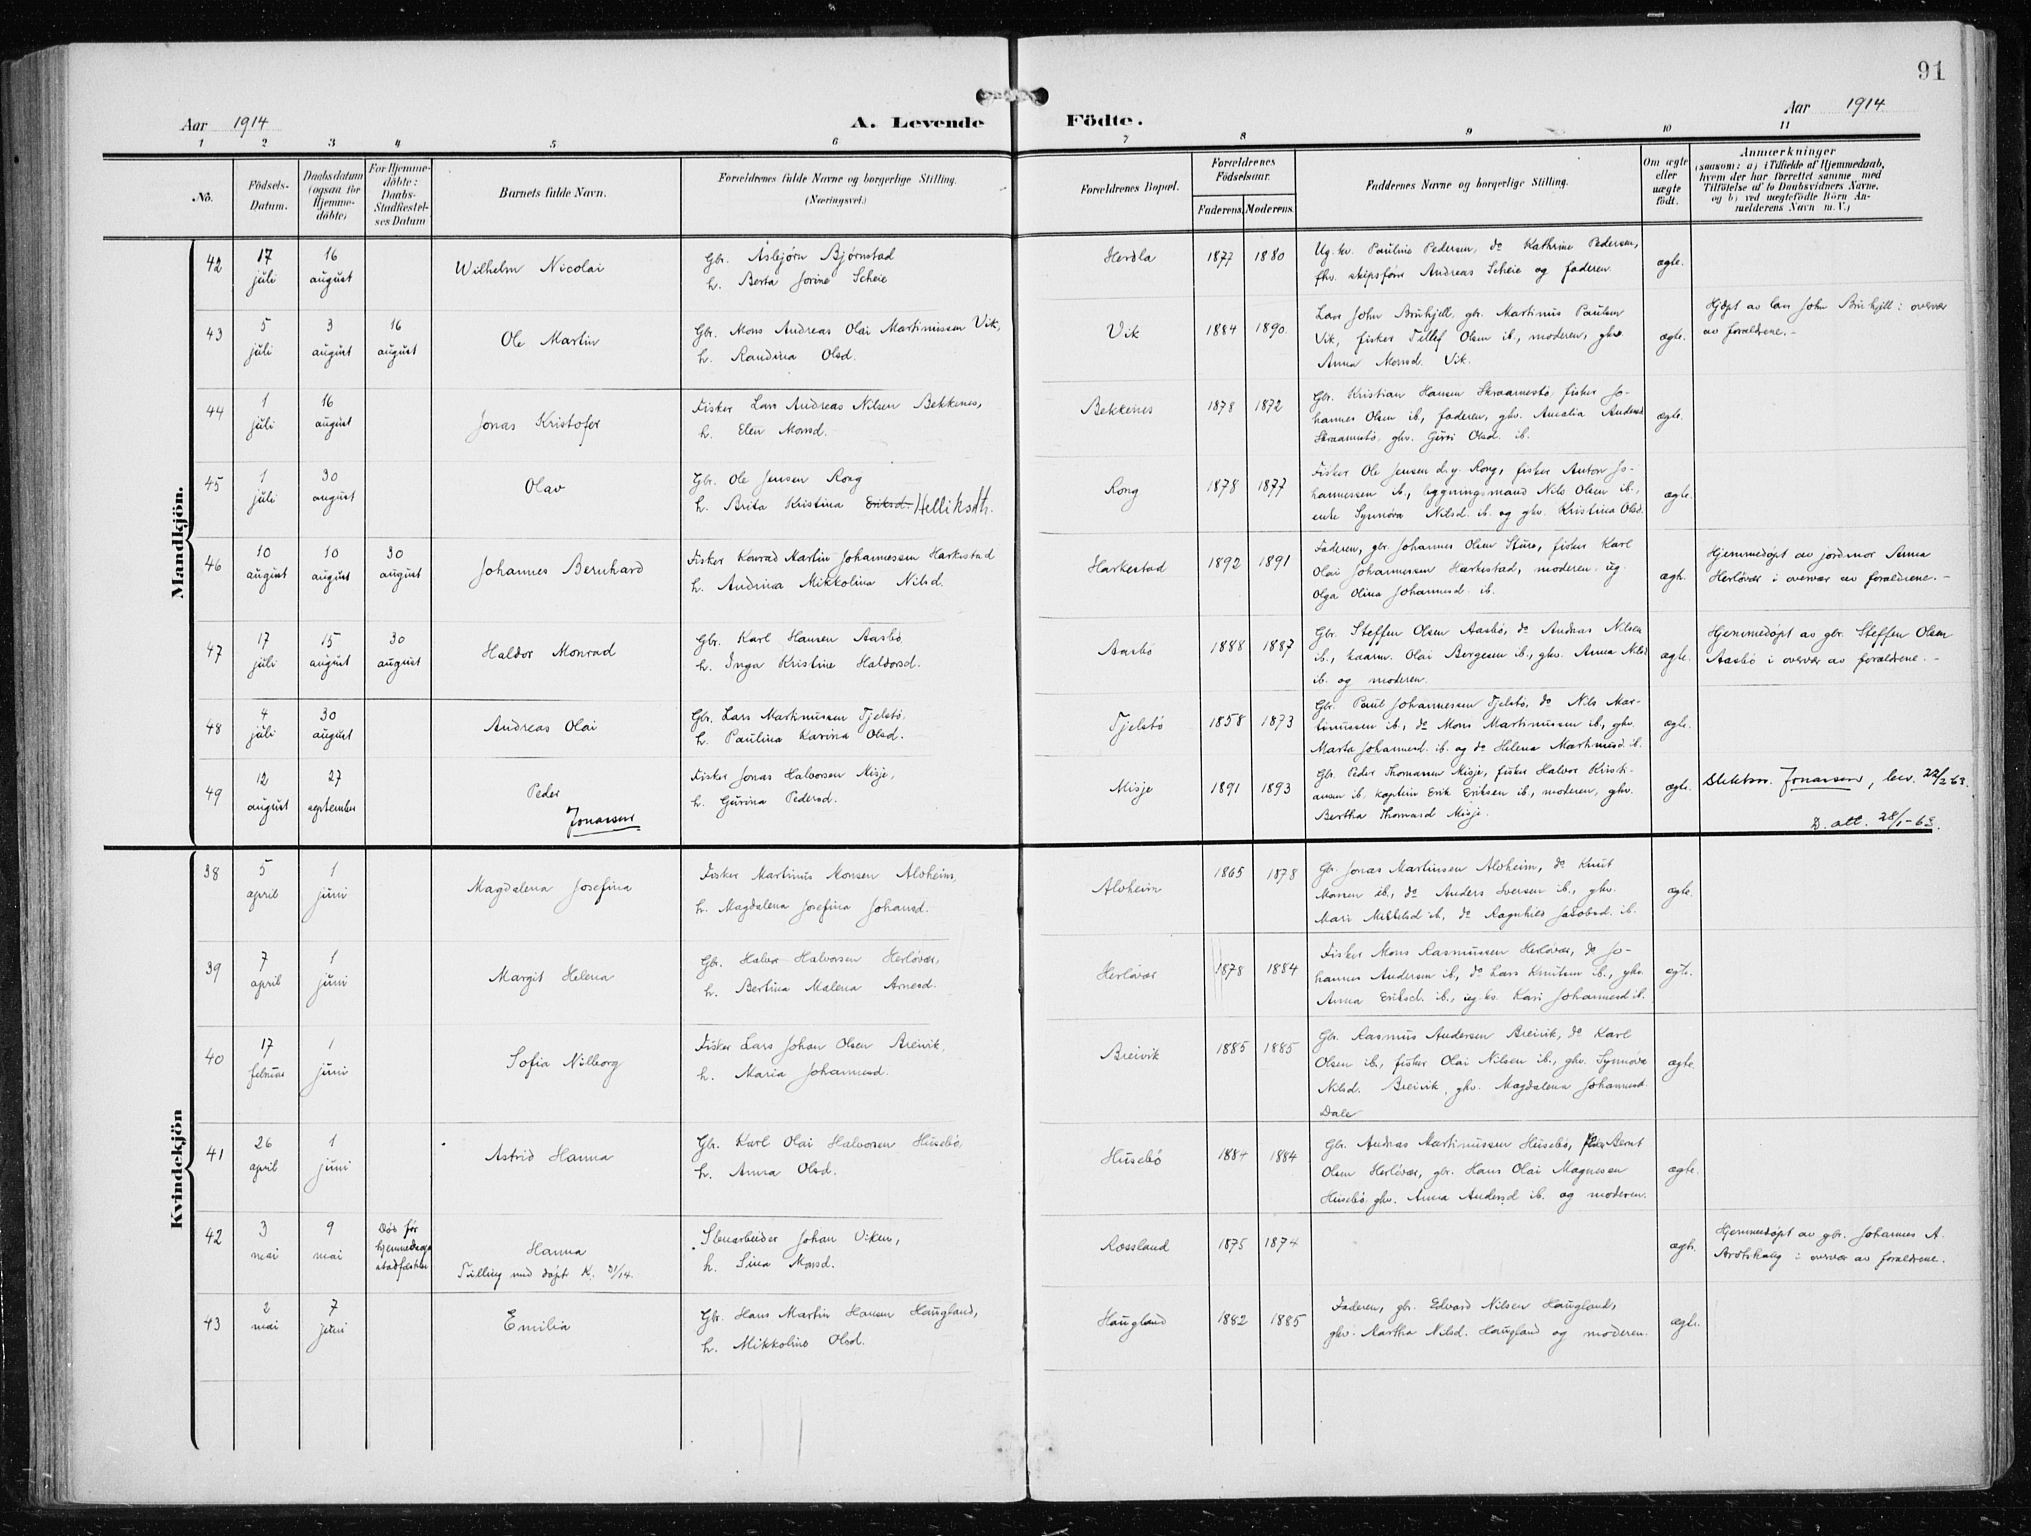 91
Aar 1914 A. Levende Födte. Aar 1914
1 2 3 4 5 6 7 8 9 10 11
No.
Födsels-
Datum.
Daabsdatum
(ogsaa for
Hjemme-
döbte)
For Hjemme-
döbte:
Daabs-
Stadfæstel-
ses Datum
Barnets fulde Navn.
Forældrenes fulde Navne og borgerlige Stilling.
(Næringsvei.)
Forældrenes Bopæl.
Forældrenes
Födselsaar.
Faderens. Moderens.
Faddernes Navne og borgerlige Stilling.
Om ægte
eller
uægte
födt.
Anmærkninger
(saasom: a) i Tilfælde af Hjemmedaab,
hvem der har forrettet samme med
Tilföielse af to Daabsvidners Navne,
og b) ved uægtefödte Börn An-
melderens Navn m. V.)
Mandkjön.
42
17
juli
16
august
Wilhelm Nicolai
Gbr. Asbjørn Bjørnstad
h. Berta Jorine Scheie
Herdla
1877 1880
Ug. kv. Pauline Pedersen, do Kathrine Pedersen,
fhv. skipsfører Andreas Scheie og faderen.
ægte.
43
5
juli
3
august
16
august
Ole Martin
Gbr. Mons Andreas Olai Martinussen Vik,
h. Randina Olsd.
Vik
1884 1890.
Lars John Brukjell, gbr. Martinus Paulsen
Vik, fisker Tillef Olsen ib., moderen, ghv
Anna Monsd. Vik.
ægte.
Hjdøpt av Lars John Brukjell i overvær
av forældrene.-
44
1
juli
16
august
Jonas Kristofer
Fisker Lars Andreas Nilsen Bekkenes,
h. Elen Monsd.
Bekkenes
1878 1872
Gbr. Kristian Hansen Skraamestø, fisker Jo-
hannes Olsen ib., faderen, ghv. Amalia Andersd
Skraamestø, ghv. Guri Olsd. ib.
ægte.
45
1
juli
30
august
Olav
Gbr. Ole Jensen Rong
h. Brita Kristina Eriksd. Helliksdt.
Rong
1878 1877
Fisker Ole Jensen d.y. Rong, fisker Anton Jo-
hannessen ib., bygningsmand Nils Olsen ib.,
enke Synnøva Nilsd. ib. og ghv. Kristina Olsd.
ægte.
46
10
august
10
august
30
august
Johannes Bernhard
Fisker Konrad Martin Johannessen Harkestad
h. Andrina Mikkolina Nilsd.
Harkestad
1892 1891
Faderen, gbr. Johannes Olsen Sture, fisker Karl
Olai Johannessen Harkestad, moderen, ug.
Olga Olina Johannesd. ib.
ægte.
Hjemmedøpt av jordmor Anna
Herløvær i overvær av forældrene.-
47
17
juli
15
august
30
august
Haldor Monrad
Gbr. Karl Hansen Aasbø
h. Inga Kristine Haldorsd.
Aasbø
1888 1887
Gbr. Steffen Olsen Aasbø, do Andreas Nilsen
ib., Olai Bergesen ib., ghv. Anna Nilsd
ib. og moderen.
ægte.
Hjemmedøpt av gbr. Steffen Olsen
Aasbø i overvær av forældrene.-
48
4
juli
30
august
Andreas Olai
Gbr. Lars Martinussen Tjelstø,
h. Paulina Karina Olsd.
Tjelstø
1858 1873
Gbr. Paul Johannessen Tjelstø, do Nils Mar-
tinussen ib., do Mons Martinussen ib., ghv.
Marta Johannesd. ib. og do Helena Martinusd. ib.
ægte.
49
12
august
27
september
Peder
Jonassen
Fisker Jonas Halvorsen Misje,
h. Gurina Pedersd.
Misje
1891 1893
Gbr. Peder Thomassen Misje, fisker Halvor Kristi-
ansen ib. kaptein Erik Eriksen ib., moderen, ghv.
Bertha Thomasd Misje.
ægte.
Slektsn. Jonassen, bev. 22/2 63.
D. att. 28/1-63.
Kvindekjön
38
5
april
1
juni
Magdalena Josefina
Fisker Martinus Monsen Alvheim,
h. Magdalena Josefina Johansd.
Alvheim
1865 1878
Gbr. Jonas Martinsen Alvheim, do Knut
Monsen ib., do Anders Iversen ib., ghv.
Mari Mikkelsd ib., do Ragnhild Jakobsd. ib.
ægte.
39
7
april
1
juni
Margit Helena
Gbr. Halvor Halvorsen Herløvær,
h. Bertina Malena Arnesd.
Herløvær
1878 1884
Fisker Mons Rasmussen Herløvær, do Jo-
hannes Andersen ib., do Lars Knutsen ib., ghv.
Anna Eriksd. ib., ug. kv. Kari Johannesd ib.
ægte.
40
17
februar
1
juni
Sofia Nilborg
Fisker Lars Johan Olsen Breivik,
h. Maria Johannesd.
Breivik
1885 1885
Gbr. Rasmus Andersen Breivik, do Karl
Olsen ib., fisker Olai Nilsen ib., ghv. Synnøva
Nilsd. Breivik, ghv. Magdalena Johannesd.
Dale
ægte.
41
26
april
1
juni
Astrid Hanna
Gbr. Karl Olai Halvorsen Husebø,
h. Anna Olsd.
Husebø
1884 1884
Gbr. Andreas Martinussen Husebø, Bernt
Olsen Herløvær, gbr. Hans Olai Magnesen
Husebø, ghv. Anna Andersd ib. og moderen.
ægte.
42
3
mai
9
mai
Død før
hjemmedaaps
stadfæstelse
Hanna
Tilling med døpt K. 21/14.
Stenarbeider Johan Viken,
h. Sina Monsd.
Rossland
1875 1874
ægte.
Hjemmedøpt av gbr. Johannes A.
i overvær av forældrene.
43
2
mai
7
juni
Emilia
Gbr. Hans Martin Hansen Haugland,
h. Mikkoline Olsd.
Haugland
1882 1885
Faderen, gbr. Edvard Nilsen Haugland,
ghv. Martha Nilsd. Haugland og moderen.
ægte.